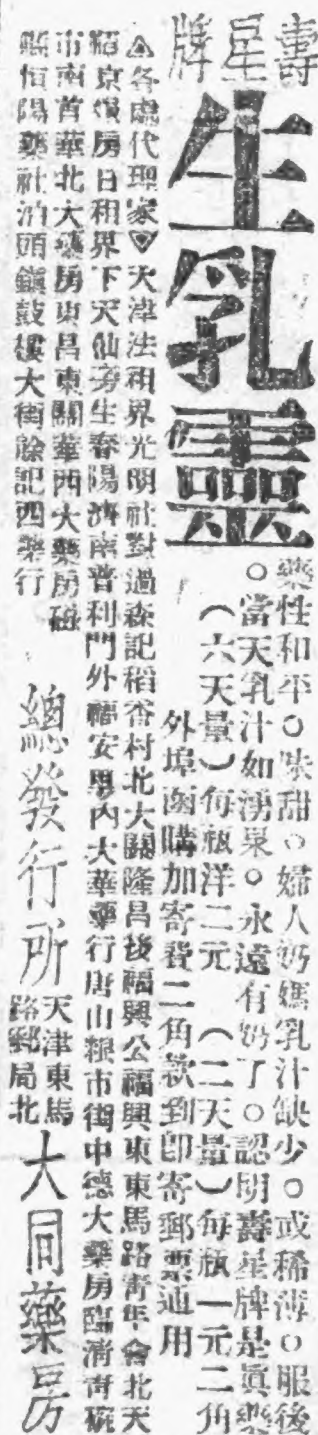 壽星牌
生乳靈
藥性和平○味甜○婦人奶媽乳汁缺少○或稀薄○服後
○當天乳汁如湧泉○永遠有奶了○認明壽星牌是眞藥
（六天量）每瓶洋二元　（二天量）每瓶一元二角
外埠函購加寄費二角款到即寄郵票通用
▲各處代理家▼天津法租界光明社對過森記稻香村北大關隆昌後福興公福興東東馬路靑年會北天
京貨房日租界下天仙旁生春陽濟南普利門外福安里內大華藥行唐山糧市街中德大藥房臨淸靑碗
市南首華北大藥房東昌東關華西大藥房磁
縣恒陽藥社泊頭鎭鼓樓大街餘記四藥行
總發行所
天津東馬
路郵局北
大同藥房